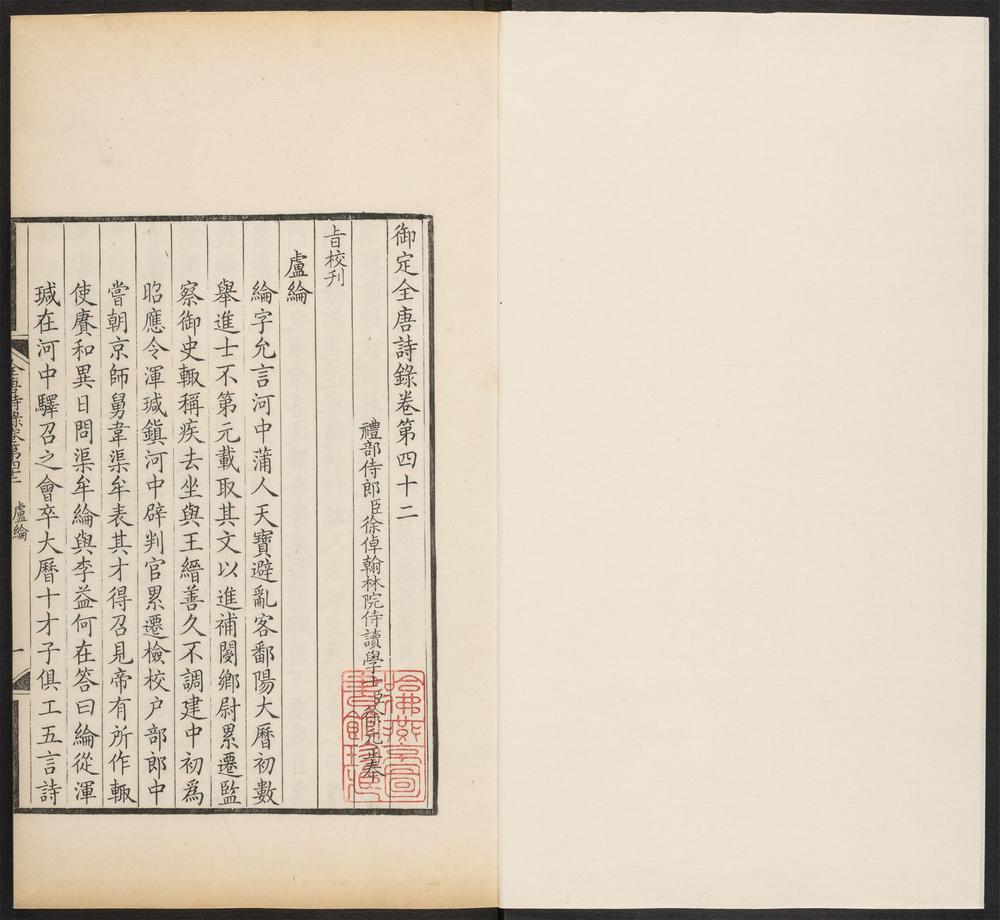 御定全唐詩錄卷第四十二
禮部侍郎臣徐倬翰林院侍讀學士臣徐元正奉
旨校刋
盧綸
綸字允言河中蒲人天寶避亂客鄱陽大曆初數
舉進士不第元載取其文以進補閿鄉尉累遷監
察御史輙稱疾去坐與王縉善久不調建中初爲
昭應令渾瑊鎭河中辟判官累遷檢校户部郎中
嘗朝京師舅韋渠牟表其才得召見帝有所作輙
使賡和異日問渠牟綸與李益何在答曰綸從渾
瑊在河中驛召之會卒大曆十才子俱工五言詩
全唐詩錄卷第四十二 盧綸 一
哈佛燕京圖書館珍藏